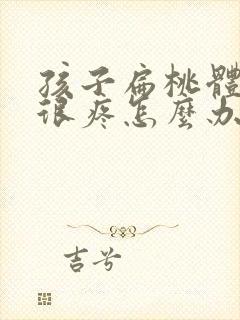 孩子扁桃體
很疼怎麼办
吉兮